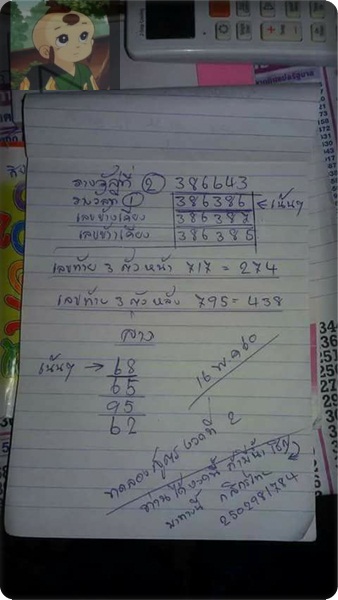 รางวัลที่ ② 386643
รางวัลที่ ① 386386 ⋸ เน้นๆ
เลขข้างเคียง 386387
เลขข้างเคียง 386385
เลขท้าย 3 ตัว หน้า 717 = 274
เลขท้าย 3 ตัว หลัง 795 = 438
ล่าง
เน้นๆ → 68
65
95
62
16 พ.ค 60
ทดลองสูตร งวดที่ 2
ท่านได้งวดนี้
กสิกรไทย
2502981784